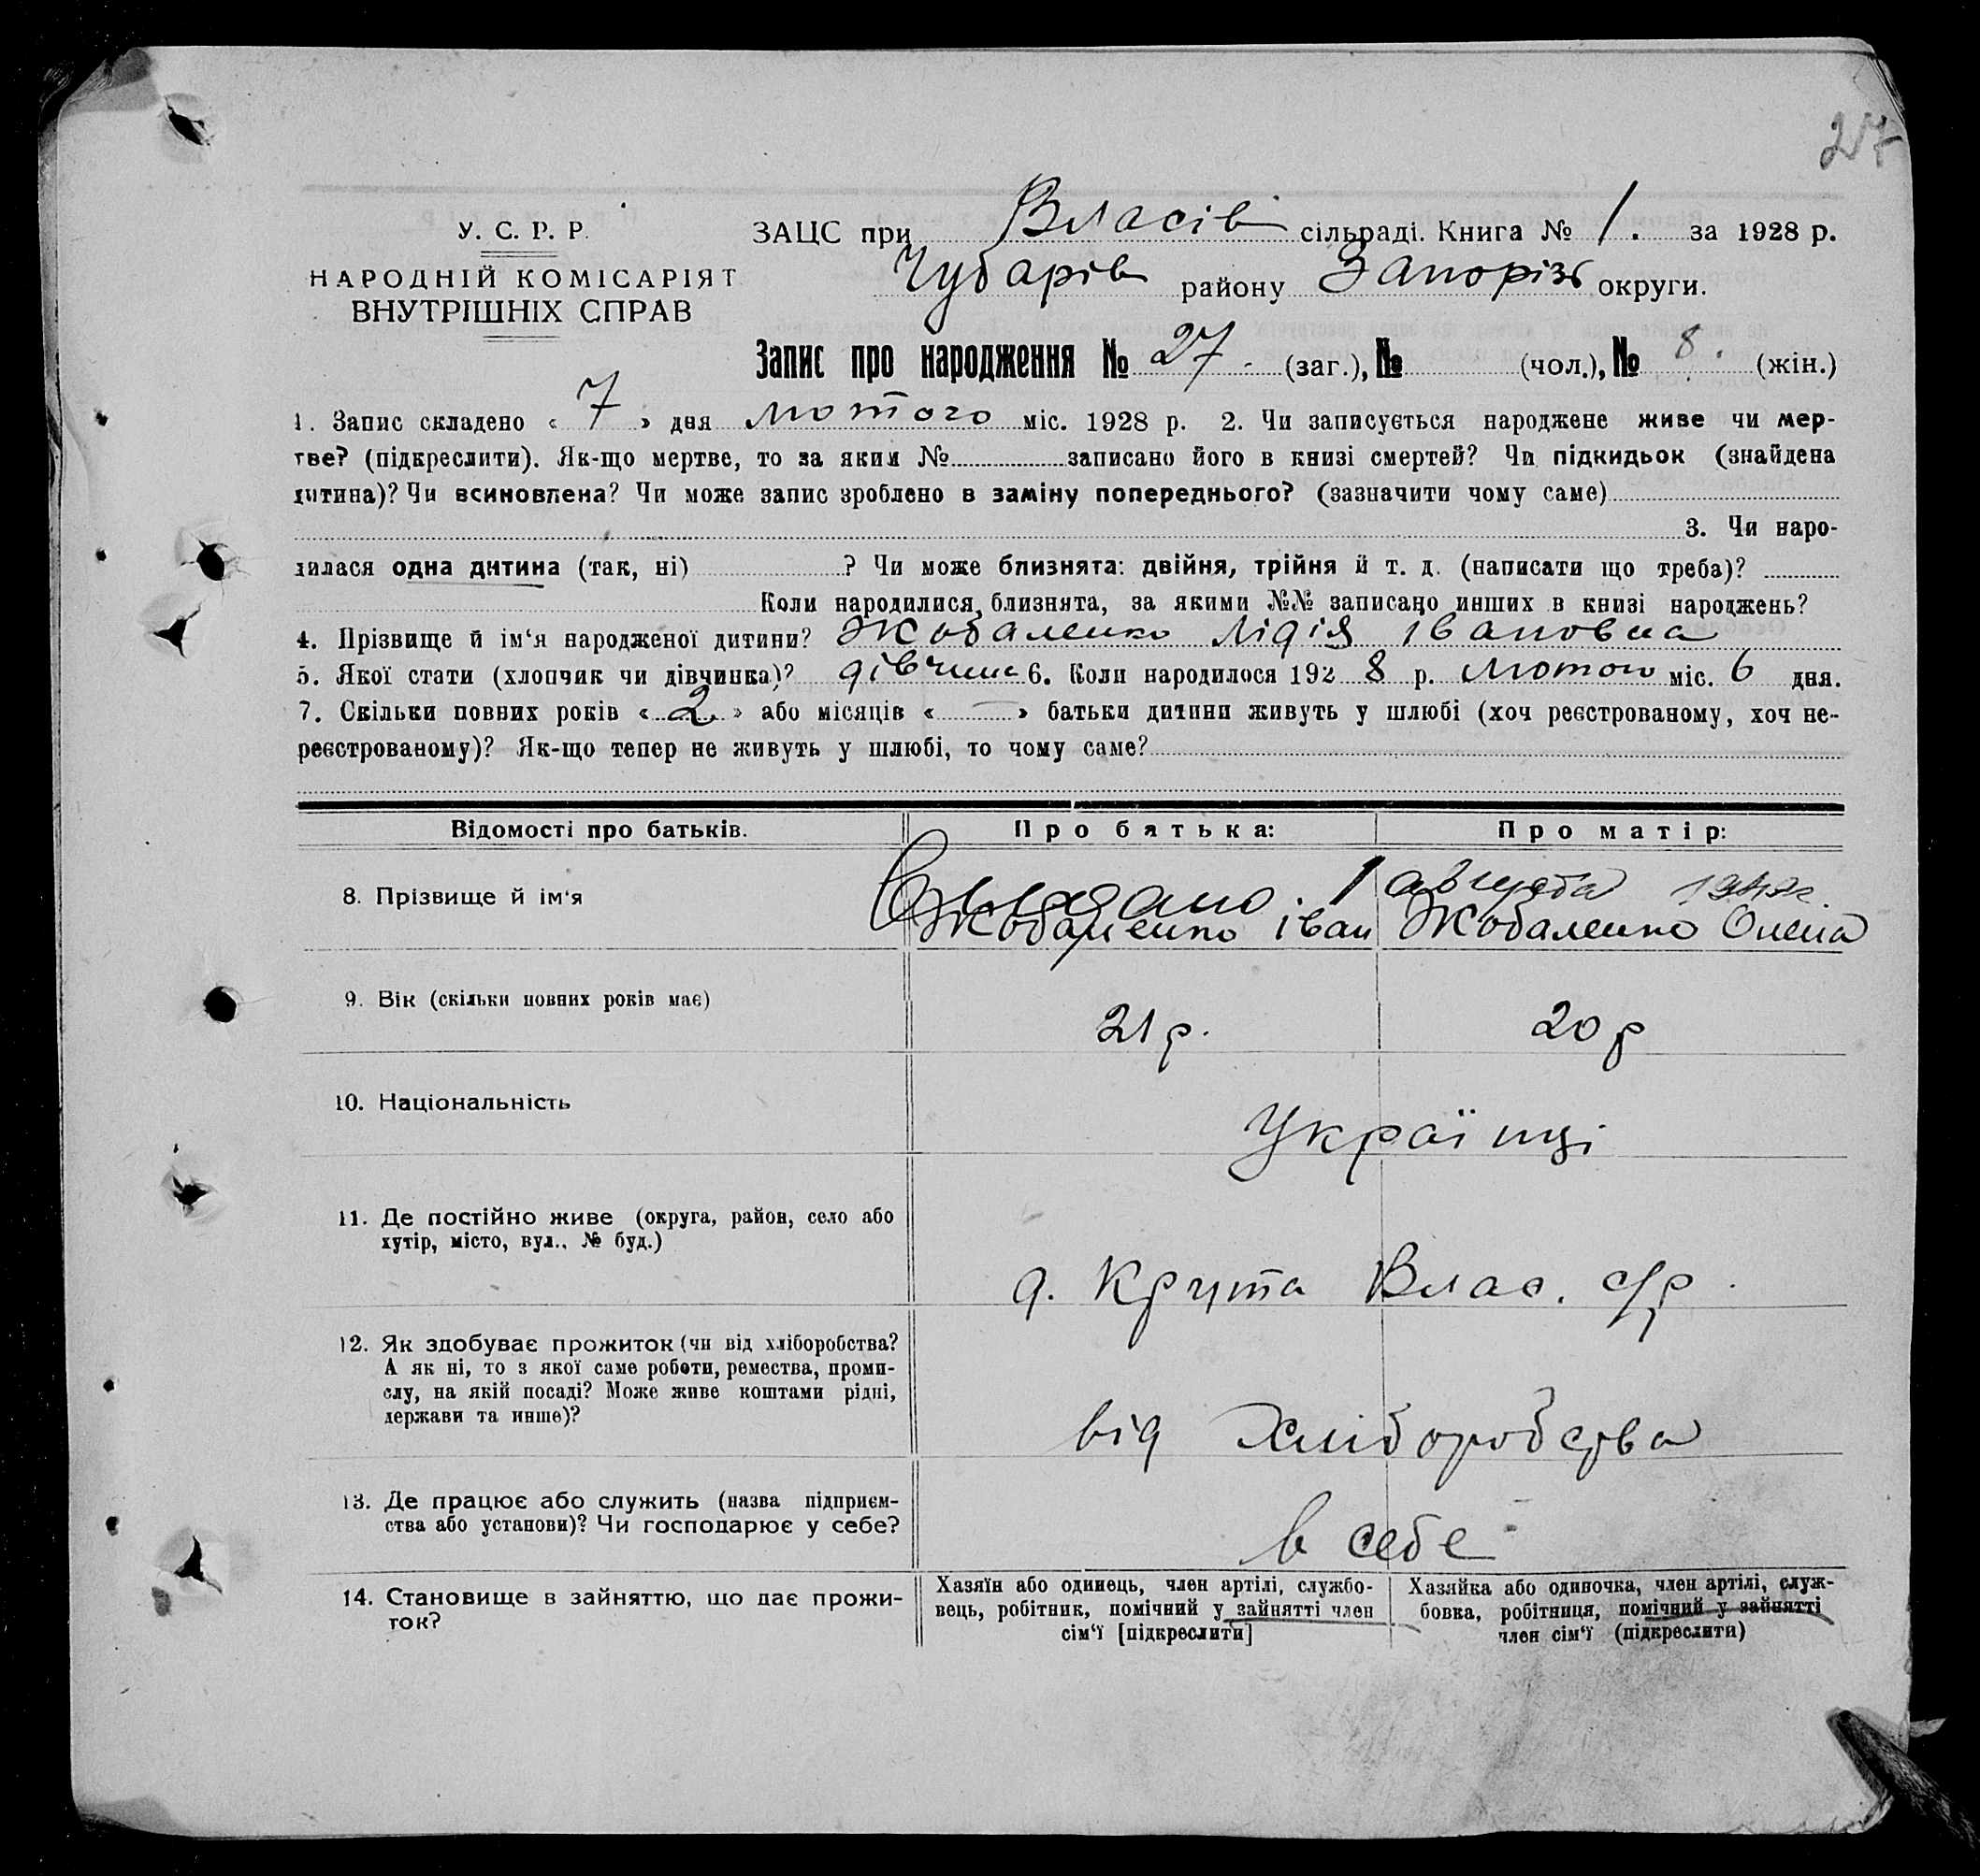 27
У. С. Р. Р.
НАРОДНІЙ КОМІСАРІЯТ
ВНУТРІШНІХ СПРАВ
ЗАЦС при Власів сільраді. Книга № 1. за 1928 р.
Чубарів району Запорізь округи.
Запис про народження № 27. (заг.), № (чол.), № 8. (жін.)
1. Запис складено « 7 » дня лютого міс. 1928 р. 2. Чи записується народжене живе чи мер-
тве? (підкреслити). Як-що мертве, то за яким № записано його в книзі смертей? Чи підкидьок (знайдена
дитина)? Чи всиновлена? Чи може запис зроблено в заміну попереднього? (зазначити чому саме)
3. Чи наро-
дилася одна дитина (так, ні) ? Чи може близнята: двійня, трійня й т. д. (написати що треба)?
Коли народилися близнята, за якими №№ записано инших в книзі народжень?
4. Прізвище й ім‘я народженої дитини? Жобаленко Лідія Івановна
5. Якої стати (хлопчик чи дівчинка)? дівчинк 6. Коли народилося 192 8 р. лютого міс. 6 дня.
7. Скільки повних років « 2 » або місяців « — » батьки дитини живуть у шлюбі (хоч реєстрованому, хоч не-
реєстрованому)? Як-що тепер не живуть у шлюбі, то чому саме?
Відомості про батьків.
Про батька:
Про матір:
8. Прізвище й ім‘я
1 августа
Жобаленко Іван
Жобаленко Олена
9. Вік (скільки повних років має)
21 р.
20 р
10. Національність
Українці
11. Де постійно живе (округа, район, село або
хутір, місто, вул., № буд.)
д. Крута Влас. с/р.
12. Як здобуває прожиток (чи від хліборобства?
А як ні, то з якої саме роботи, ремества, проми-
слу, на якій посаді? Може живе коштами рідні,
держави та инше)?
від Хліборобства
13. Де працює або служить (назва підприєм-
ства або установи)? Чи господарює у себе?
в себе
14. Становище в зайняттю, що дає прожи-
ток?
Хазяїн або одинець, член артілі, службо-
вець, робітник, помічний у зайнятті член
сім‘ї [підкреслити]
Хазяйка або одиночка, член артілі, служ-
бовка, робітниця, помічний у зайнятті
член сім‘ї (підкреслити)